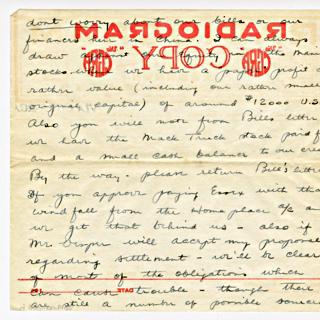 dont worry about our bills or our
finances here in China I always
draw against
stocks we have a paper profit
rather value (including our rather small
original capital) of around $12000 U.S.
Also you will note from Bills letter
we have the Mack Truck stock paid f
and a small cash balance to our cre
By the way - please return Bill's lette
If you approve paying Essex with tha
wind fall from the Home place a/c a
we get that behind us - also if
Mr. will accept my proposa
regarding settlement - we'll be clear
of most of the obligations which
can cause trouble - though there
are still a number of possible source
RADIOGRAM
COPY
DATE